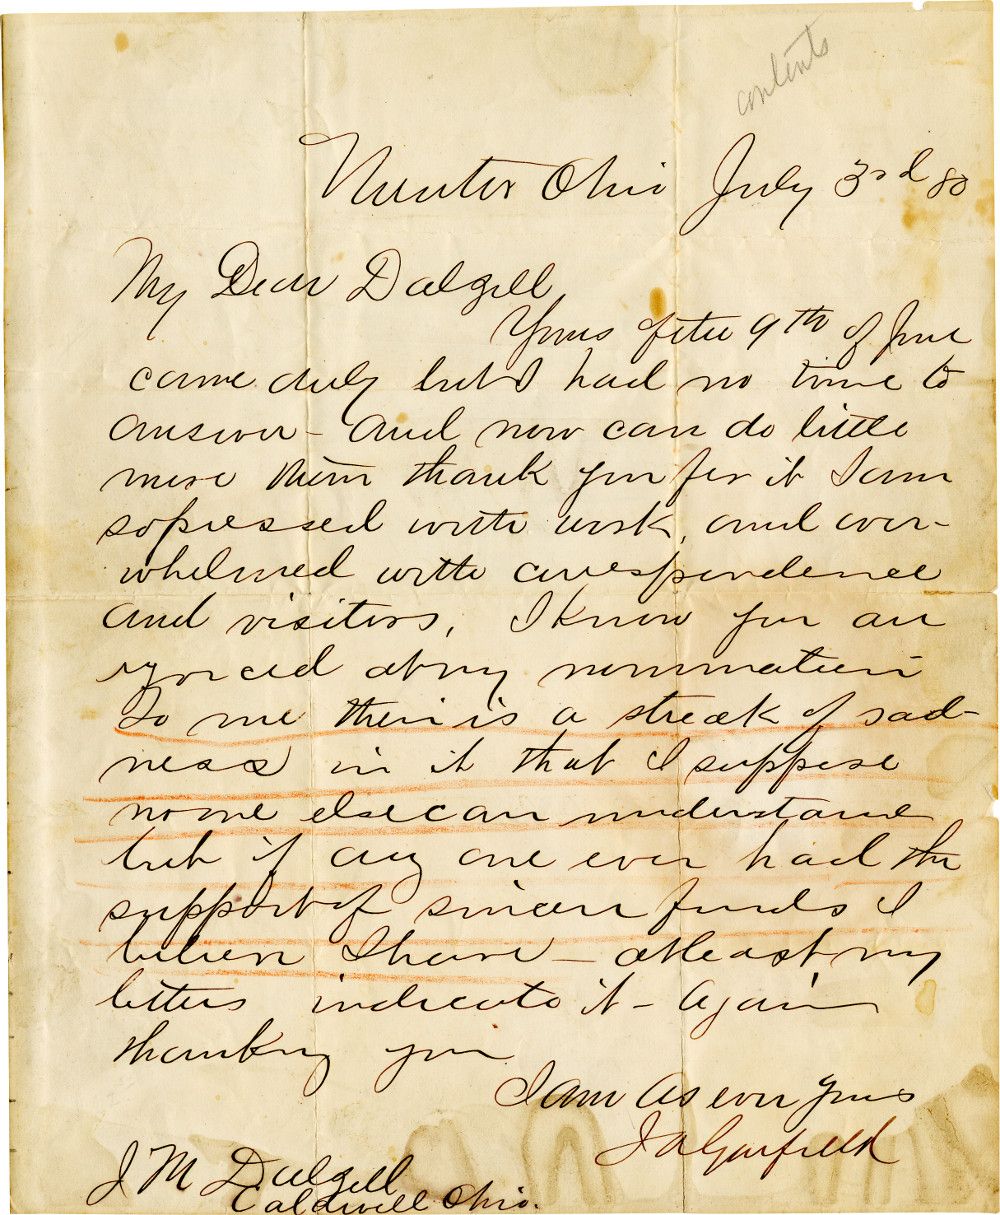 contents
Mentor Ohio July 3rd 80
My Dear Dalzell
Yours of the 9th of June
came duly but I had no time to
answer - And now can do little
more than thank you for it I am
so pressed with work, and over-
whelmed with correspondence
and visitors, I know you are
rejoiced at my nomination
To me there is a streak of sad-
ness in it that I suppose
no one else can understand
but if any one ever had the
support of sincere friends I
believe I have - at least my
letters indicate it - Again
thanking you
I am As ever Yours
J A Garfield
J M Dalzell
Caldwell Ohio.